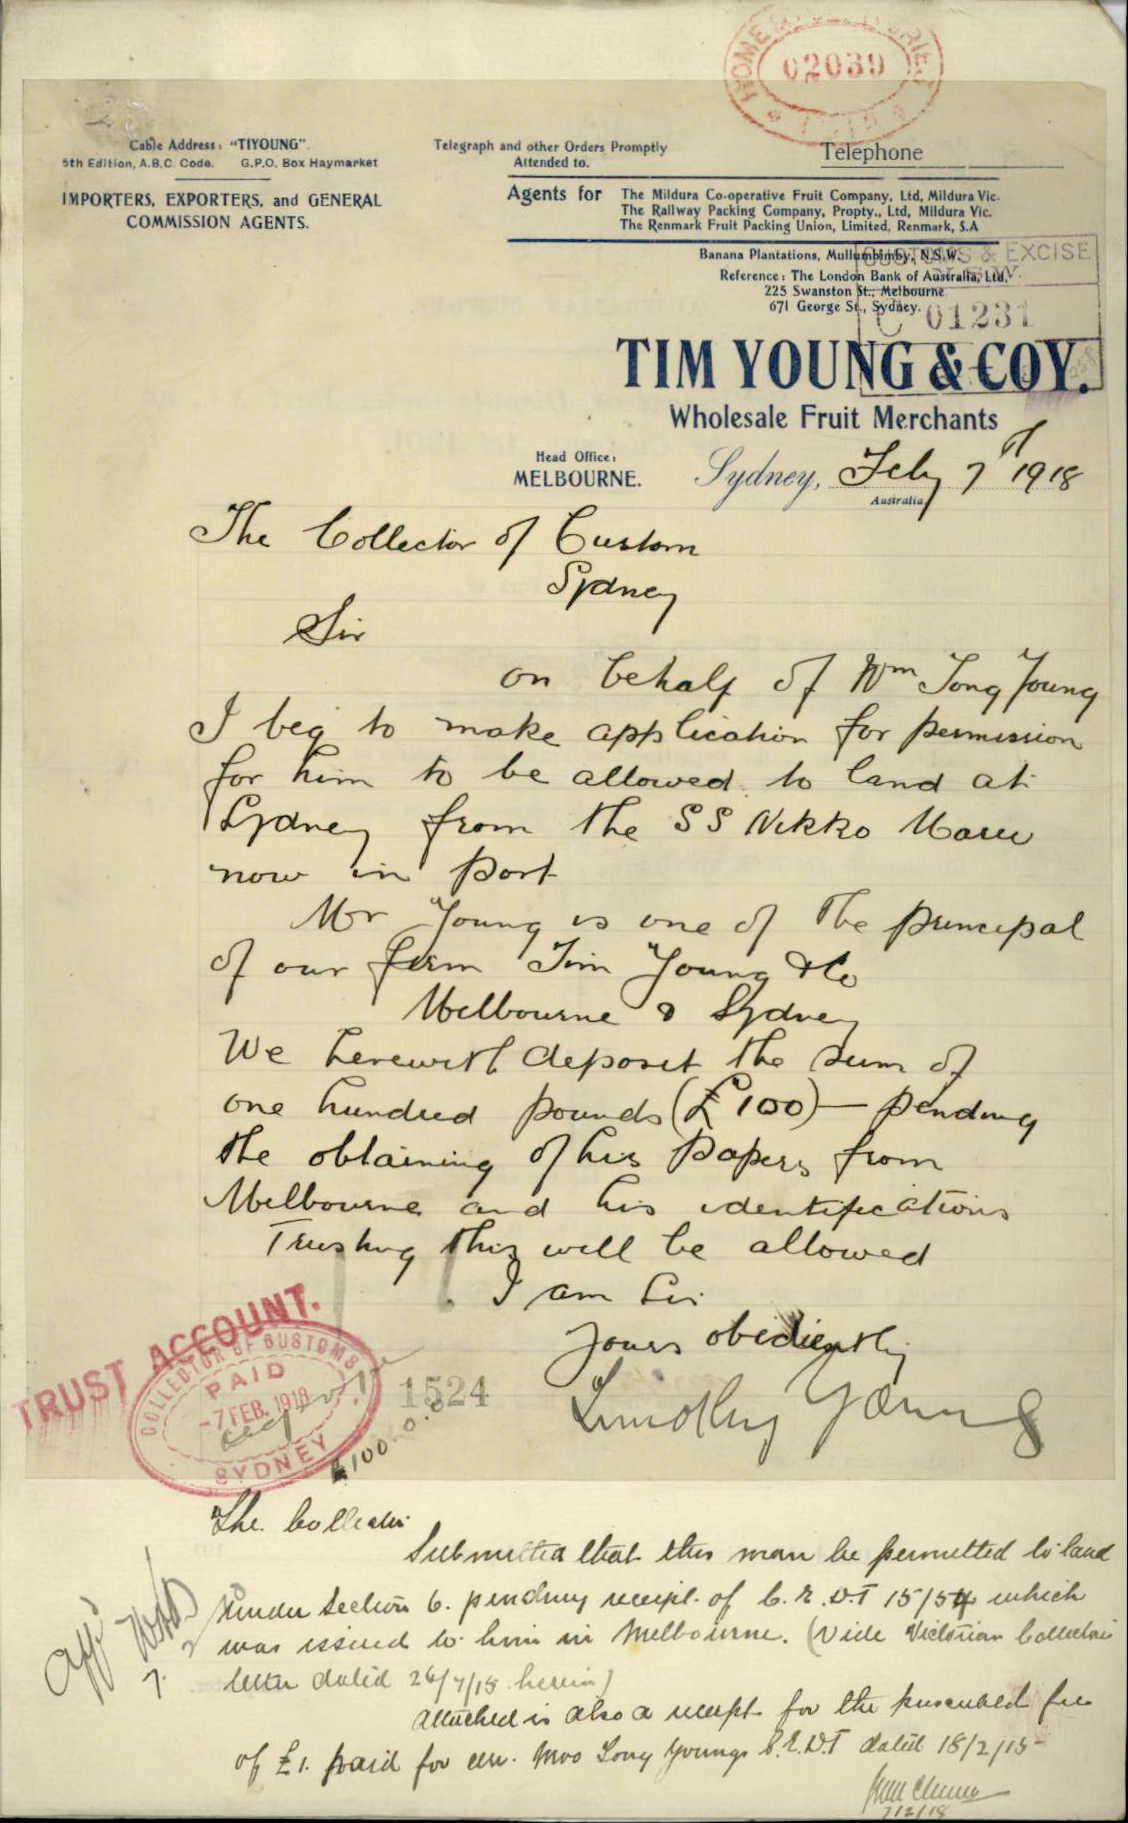 HOME & TERRITORIES
02039
Cable Address: "TIYOUNG".
5th Edition, A.B.C. Code. G.P.O. Box Haymarket
IMPORTERS, EXPORTERS, and GENERAL
COMMISSION AGENTS.
Telegraph and other Orders Promptly
Attended to.
Telephone
Agents for The Mildura Co-operative Fruit Company, Ltd, Mildura Vic.
The Railway Packing Company, Propty., Ltd, Mildura Vic.
The Renmark Fruit Packing Union, Limited, Renmark, S.A
Banana Plantations, Mullumbimby, N.S.W.
Reference: The London Bank of Australia, Ltd,
225 Swanston St., Melbourne
671 George St., Sydney.
CUSTOMS & EXCISE
N.S.W.
C 01231
TIM YOUNG & COY.
Wholesale Fruit Merchants
Head Office:
MELBOURNE.
Sydney, Feby 7th 1918
Australia
The Collector of Custom
Sydney
Sir
on behalf of Wm Tong Young
I beg to make application for permission
for him to be allowed to land at
Sydney from the SS Nikko Maru
now in port
Mr Young is one of the principal
of our firm Tim Young & Co
Melbourne & Sydney
We herewith deposit the sum of
one hundred pounds (£100) — pending
the obtaining of his papers from
Melbourne and his identifications
Trusting this will be allowed
I am Sir
Yours obediently
Timothy Young
TRUST ACCOUNT.
COLLECTOR OF CUSTOMS
PAID
-7 FEB. 1918
SYDNEY
1524
£100.0.0
The Collector
Submitted that this man be permitted to land
under Section 6. pending receipt of C.E.D.T 15/54 which
was issued to him in Melbourne. (Vide Victorian Collectors
letter dated 26/7/15 herein)
Attached is also a receipt for the prescribed fee
of £1. paid for Wm. Moo Tong Youngs C.E.D.T dated 18/2/15
7/2/18